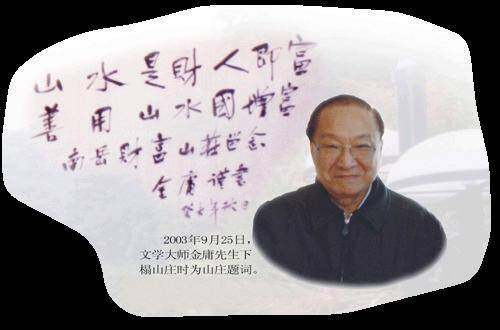 山水是財人即富
善用山水國增富
南岳財富山莊
金庸謹書
癸未年秋日
2003年9月25日,
文学大师金庸先生下
榻山庄时为山庄题词。